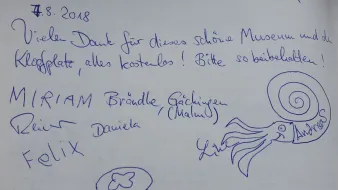 7.8.2018
Vielen Dank für dieses schöne Museum und den
Klopfplatz, alles kostenlos! Bitte so beibehalten!
MIRIAM Brändle, Gächingen
Reiner Daniela
Felix
Lina
Andreas